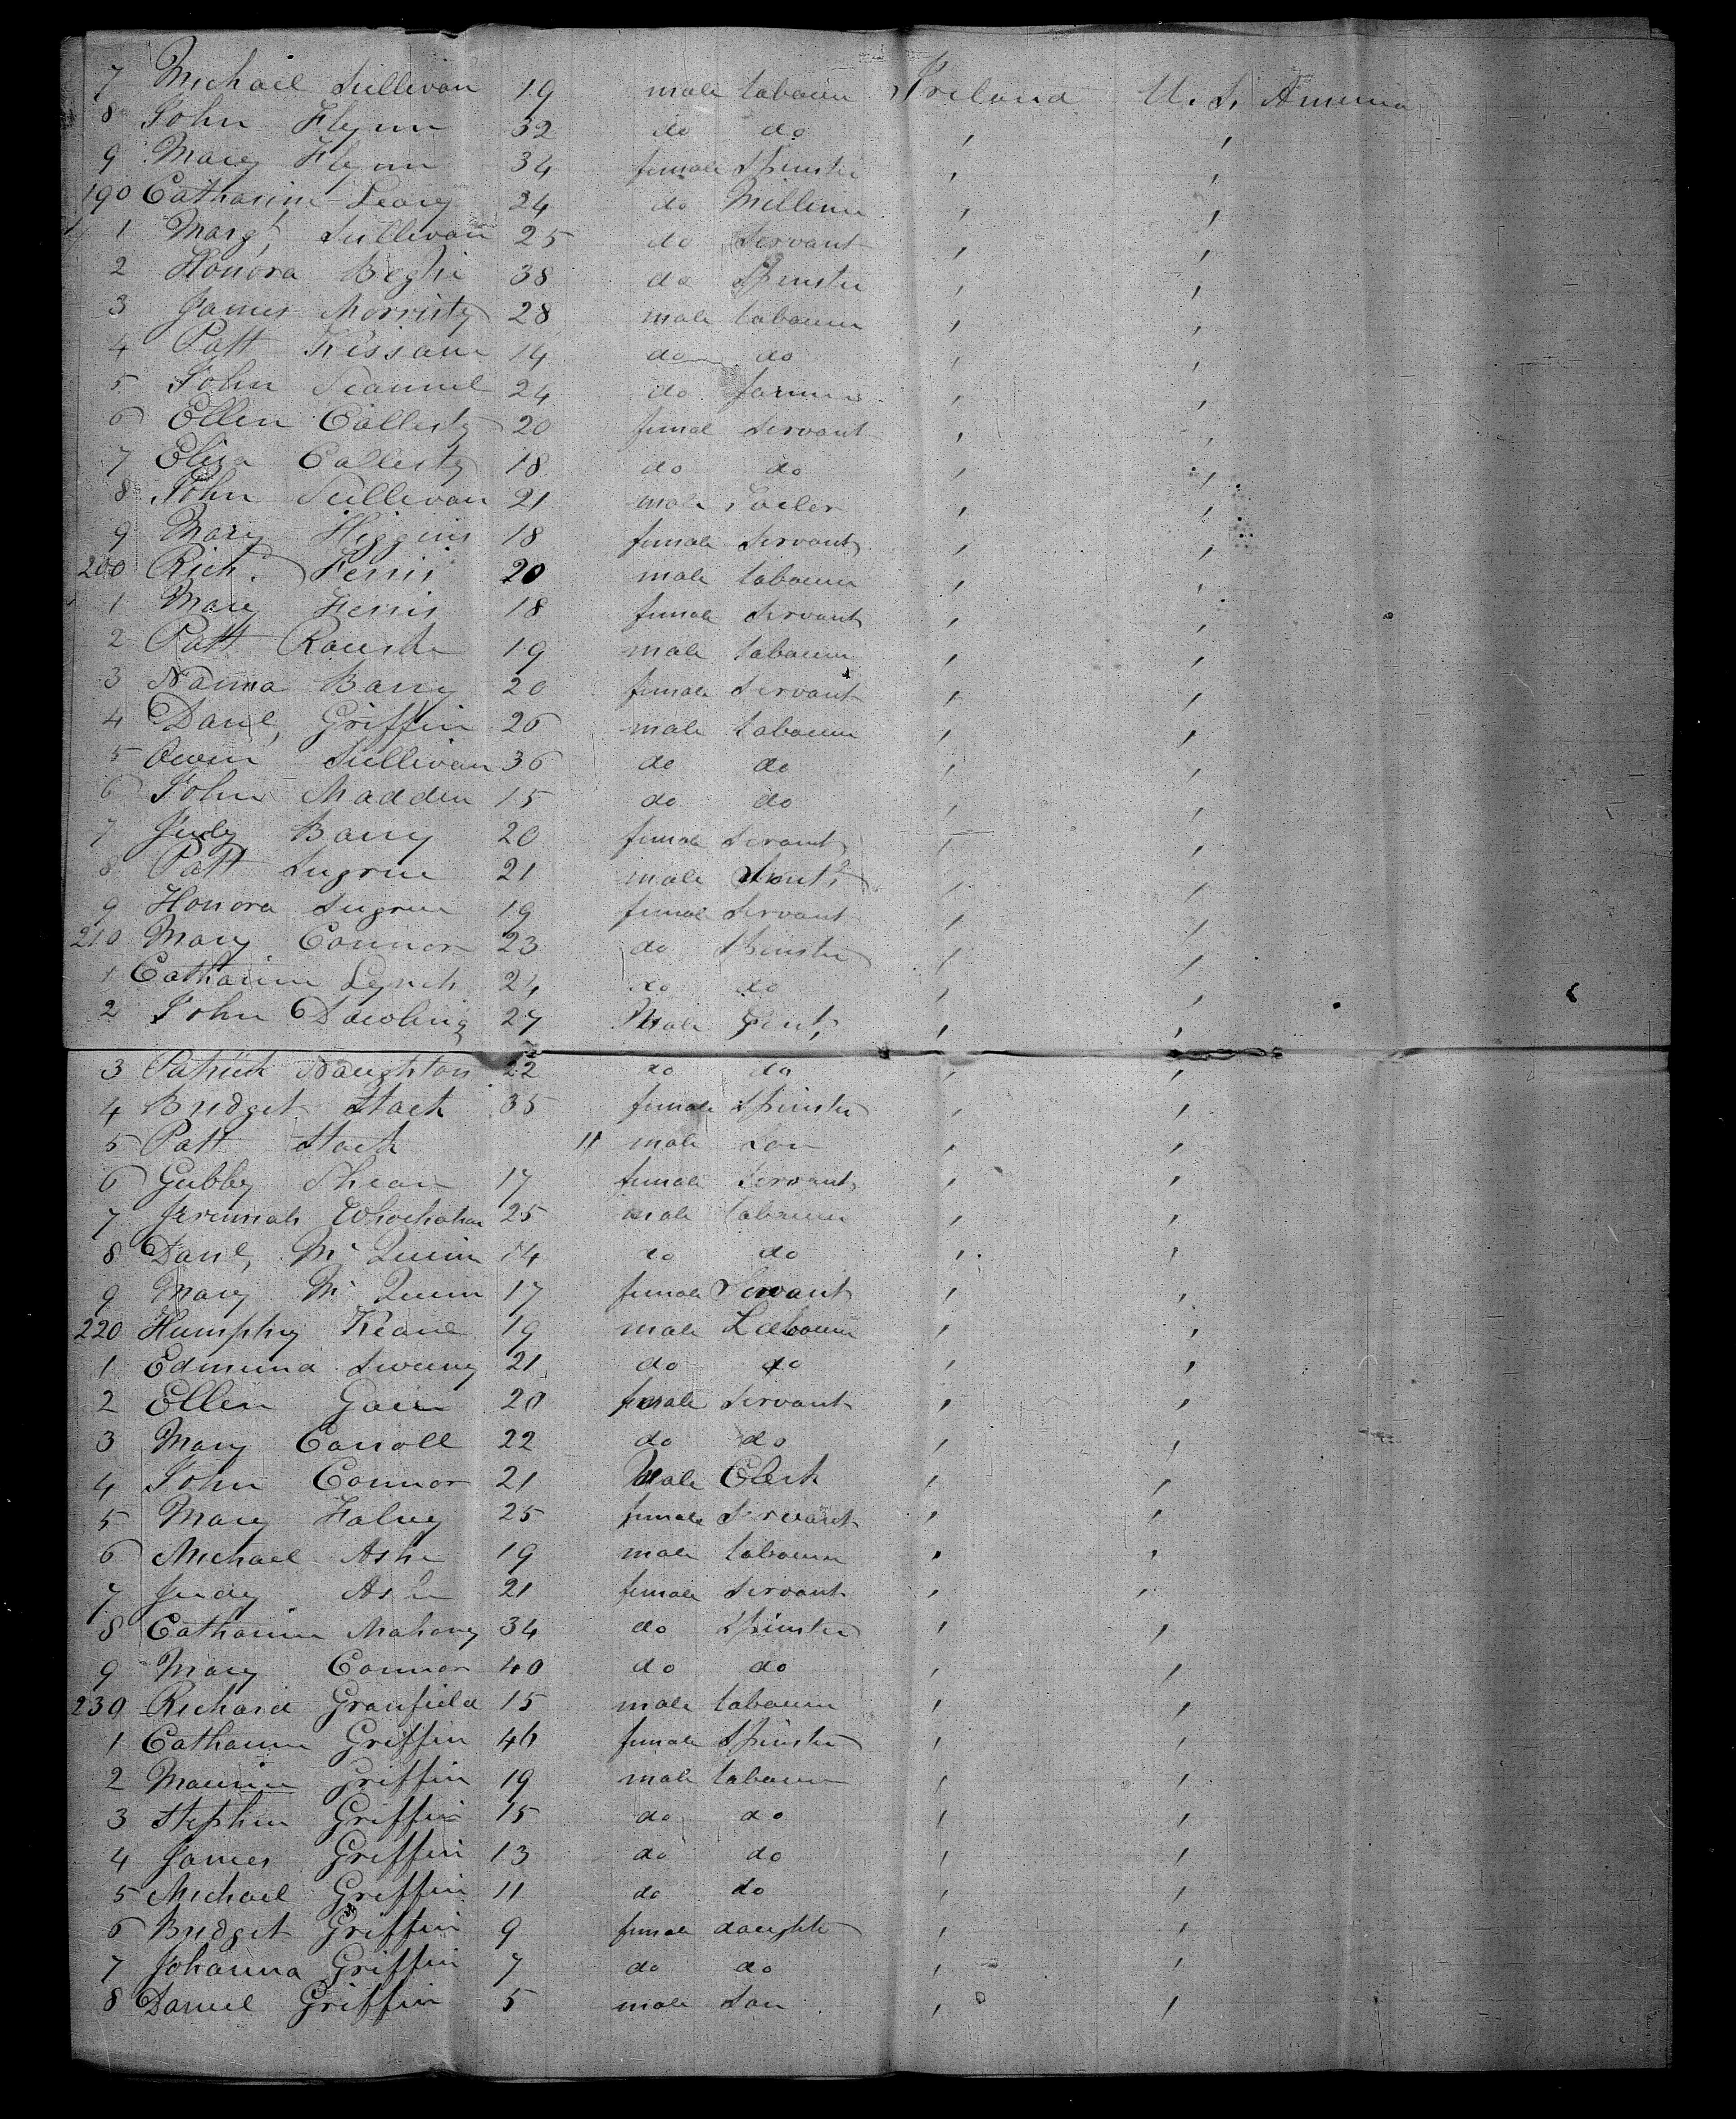 7 Michael Sullivan 19 male labourer Ireland U. S. America
8 John Flynn 32 do do , ,
9 Mary Flynn 34 female Spinster , ,
190 Catharine Leary 24 do Milliner , ,
1 Margt, Sullivan 25 do Servant , ,
2 Honora 38 do Spinster , ,
3 James Morristy 28 male labourer , ,
4 Patt Kissane 14 do do , ,
5 John Scannel 24 do farmer , ,
6 Ellen Callesty 20 femal Servant , ,
7 Eliza Callesty 18 do do , ,
8 John Sullivan 21 male , ,
9 Mary Higgins 18 female Servant , ,
200 Rich. Ferris 20 male labourer , ,
1 Mary Ferris 18 female Servant , ,
2 Patt 19 male labourer , ,
3 Nanna Barry 20 female Servant , ,
4 Danl, Griffin 26 male labourer , ,
5 Owen Sullivan 36 do do , ,
6 John Madden 15 do do , ,
7 Judy Barry 20 female Servant , ,
8 Patt Sugrue 21 male , ,
9 Honora Sugrue 19 female Servant , ,
210 Mary Connor 23 do Spinster , ,
1 Catharine Lynch 24 do do , ,
2 John Dowling 27 Male Gent, , ,
3 Patrick Naughton 22 do do , ,
4 Bridget Stack 35 female Spinster , ,
5 Patt Stack 11 male Son , ,
6 Gubby Shean 17 female Servant , ,
7 Jeremiah 25 male labourer , ,
8 Danl, Mc Quinn 14 do do , ,
9 Mary Mc Quinn 17 female Servant , ,
220 Humphry Keane 19 male Labourer , ,
1 Edmund Sweeny 21 do do , ,
2 Ellen 20 female Servant , ,
3 Mary Carroll 22 do do , ,
4 John Connor 21 Male Clerk , ,
5 Mary Falvey 25 female Servant , ,
6 Michael Ashe 19 male labourer , ,
7 Judy Ashe 21 female Servant , ,
8 Catharine Mahony 34 do Spinster , ,
9 Mary Connor 40 do do , ,
230 Richard Granfield 15 male labourer , ,
1 Catharine Griffin 46 female Spinster , ,
2 Maurice Griffin 19 male labourer , ,
3 Stephen Griffin 15 do do , ,
4 James Griffin 13 do do , ,
5 Michael Griffin 11 do do , ,
6 Bridget Griffin 9 female daughter , ,
7 Johanna Griffin 7 do do , ,
8 Daniel Griffin 5 male Son , ,